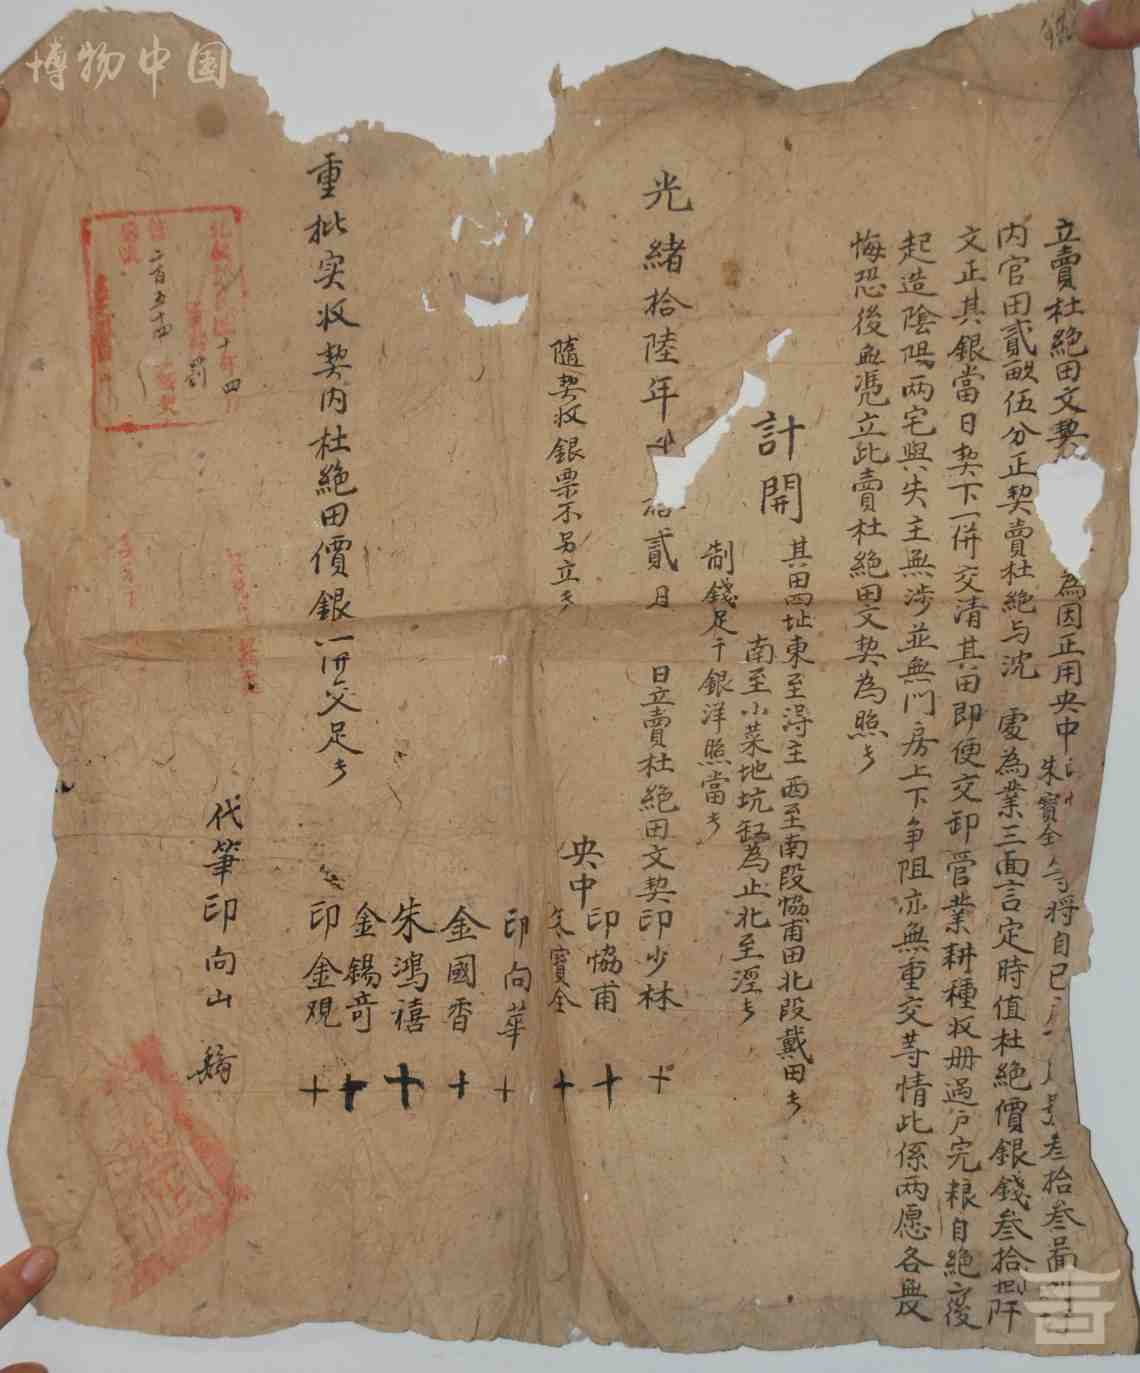 立賣杜絕田文契 為因正用央中朱寶全等將自己 叁拾叁啚
内官田貳畝伍分正契賣杜絕与沈 處為業三面言定時值杜絕價銀錢叁拾捌阡
文正其銀當日契下一併交清其田即便交卸管業耕種收册過户完粮自絕之後
起造陰陽兩宅與失主無涉並無門房上下争阻亦無重交等情此係兩愿各無反
悔恐後無凴立此賣杜絕田文契為照
計開
其田四址東至得主西至南段協甫田北段戴田
南至小菜地坑缸為止北至涇
制錢足千銀洋照當
光緒拾陸年 貳月 日立賣杜絕田文契印少林 十
央中
印協甫 十
朱寶全 十
隨契收銀票不另立
印向華 十
金國香 十
朱鴻禧 十
金錫奇 十
印金观 十
重批实收契内杜絕田價銀一併交足
代筆印向山
二百五十
四
罰
博物中国